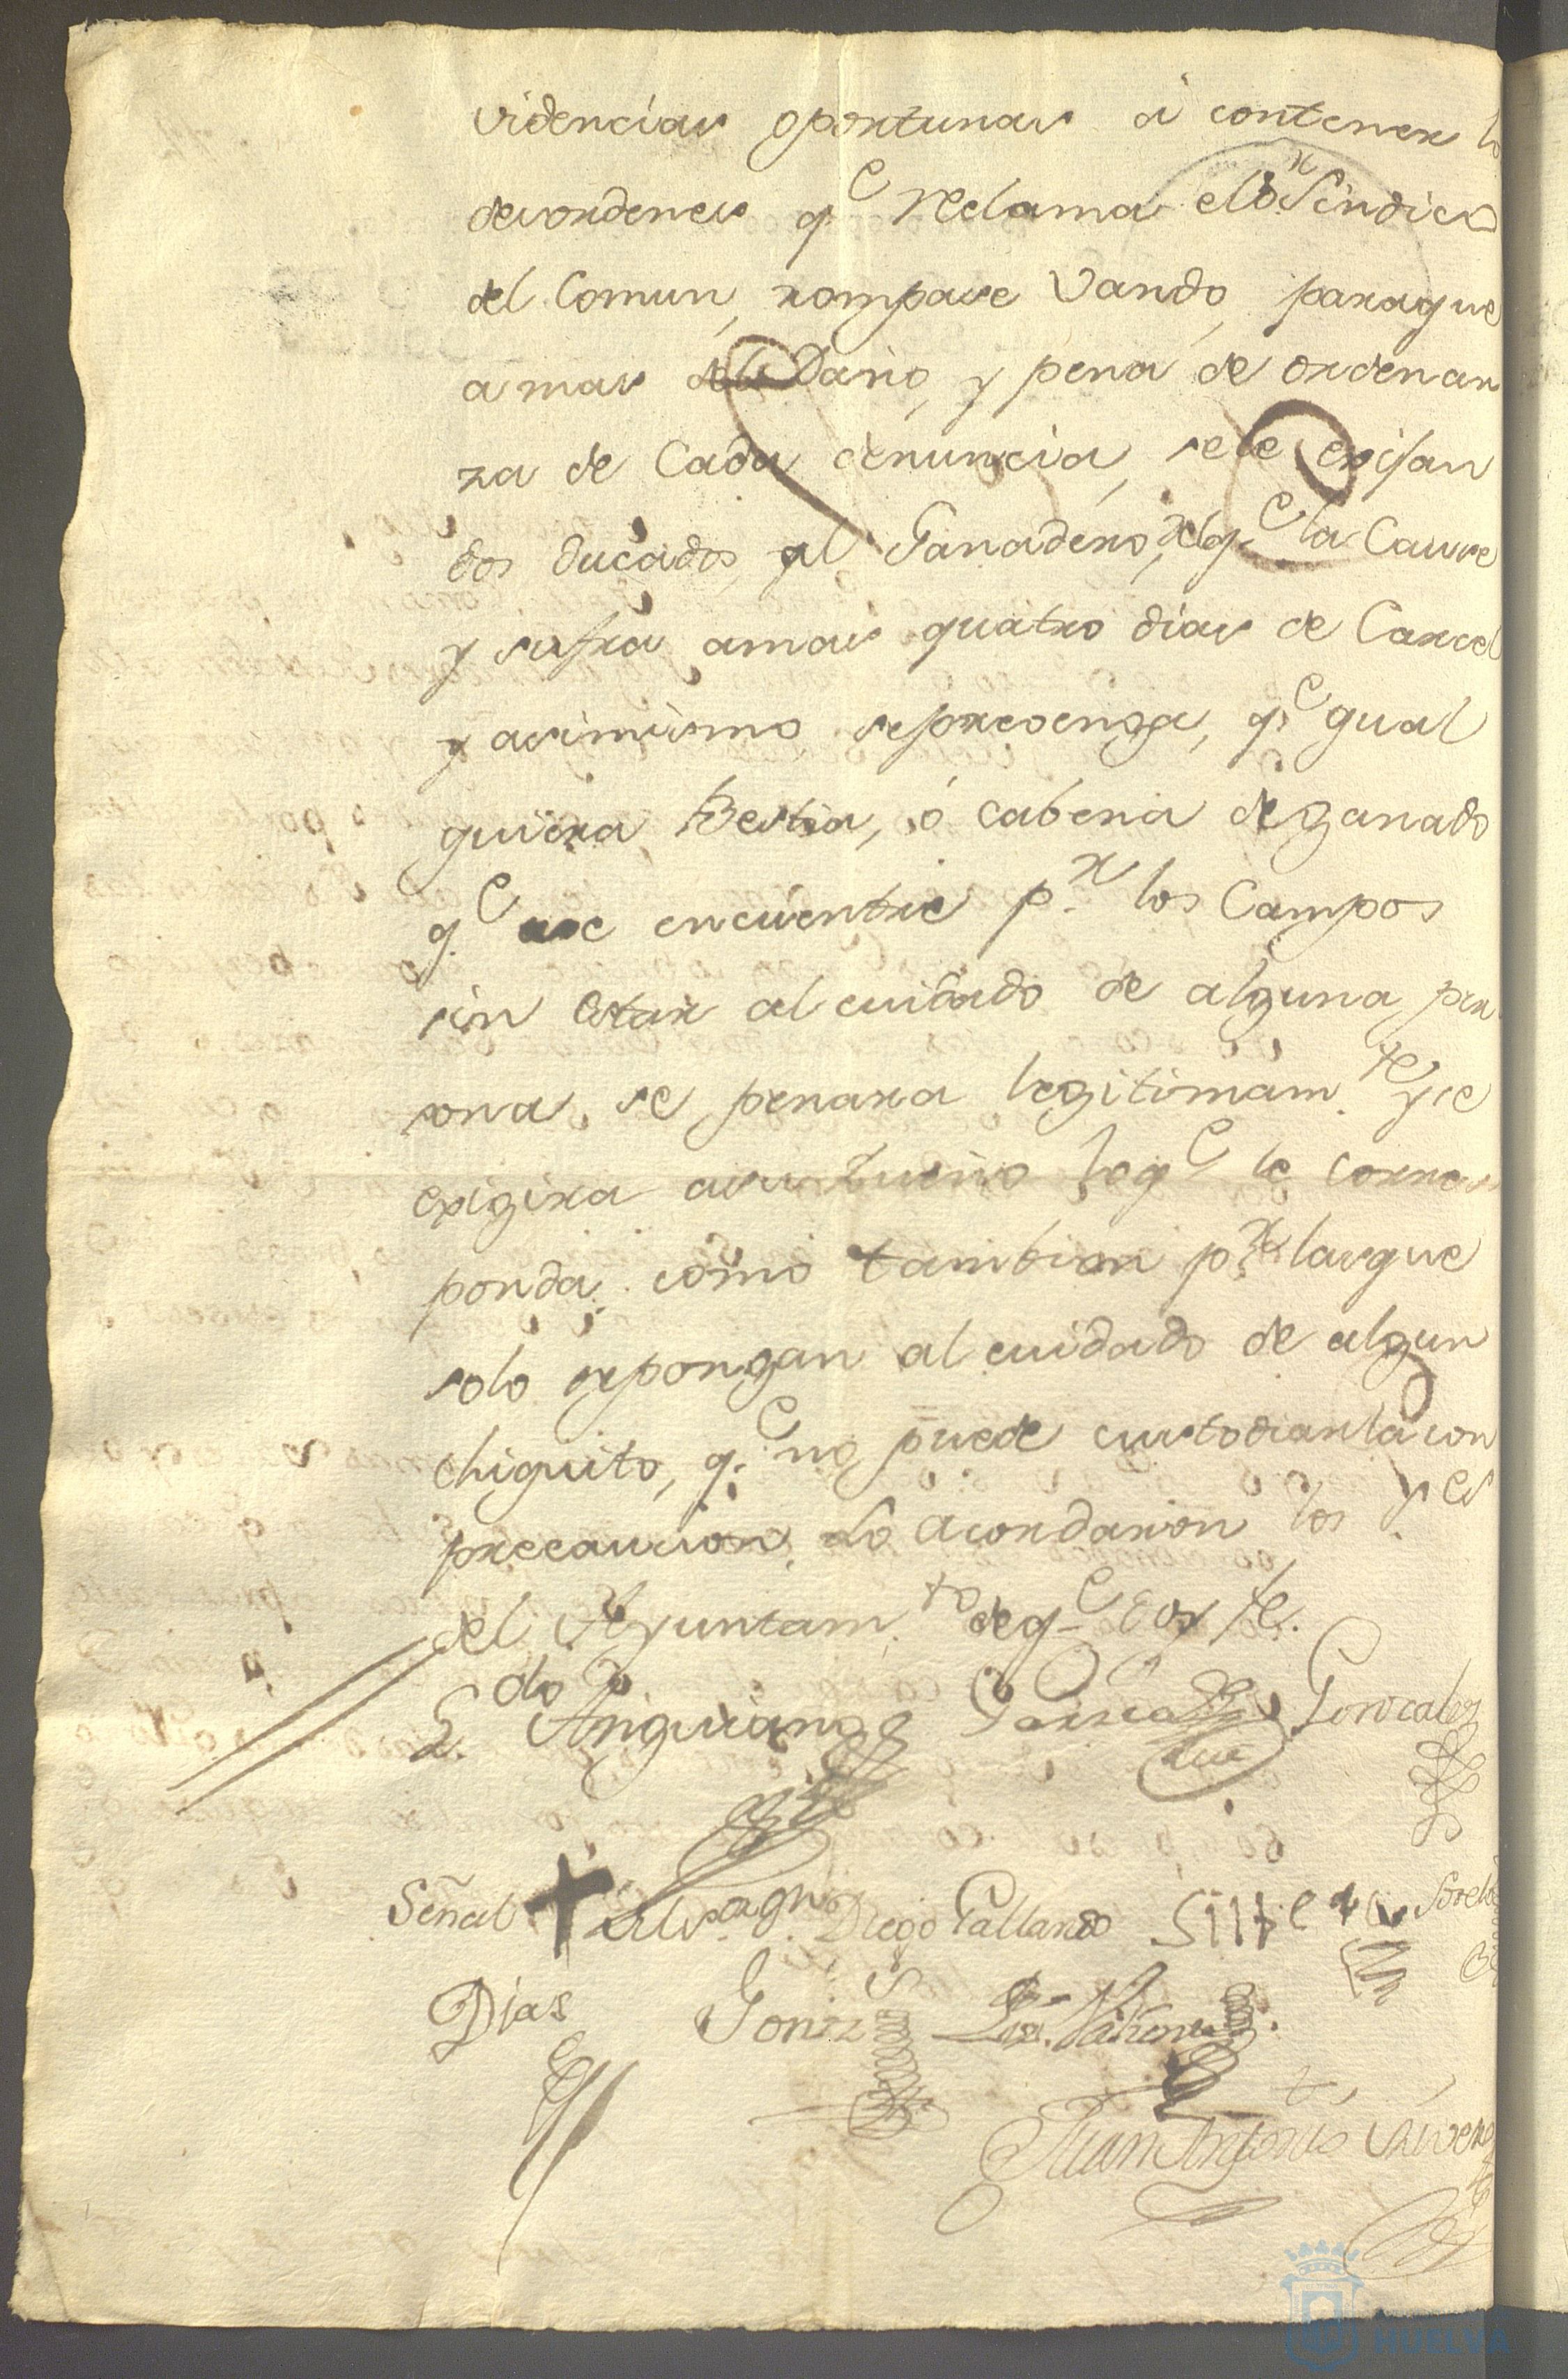 videncias oportunas á contener lo
desordenes q.e reclama el S.r Sindico
del Comun, rompase Vando, paraque
a mas del Daño, y pena de ordenan
za de Cada denuncia, sele exijan
dos ducados al Ganadero, del q.e la Cause
y sufra amas quatro dias de Carcel
y asimismo seprevenga, q.e qual
quiera Bestia, ó cabeza de ganado
q.e se encuentre p.r los Campos
sin estar al cuidado de alguna per
sona, se penara legitimam.te y se
exigira asu Dueño loq.e le corres
ponda: como tambien p.r lasque
solo sepongan al cuidado de algun
chiquito, q.e no puede custodiarla con
precaucion. Lo Acordaron los S.res
del Ayuntam.to deq.e doy fe.
L.do Anguiano Garcia Gonzales
Señal + Diego Gallardo
Dias Goniz
Juan Antonio
HUELVA